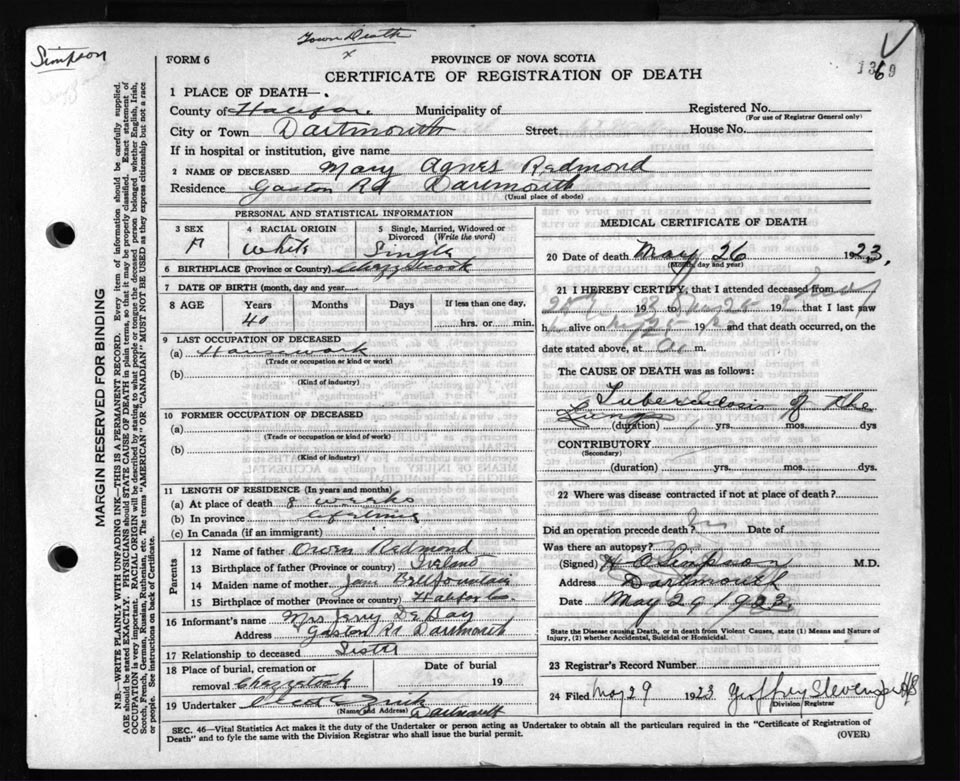 Town Death
x
Simpson
1369
FORM 6
PROVINCE OF NOVA SCOTIA
CERTIFICATE OF REGISTRATION OF DEATH
1 PLACE OF DEATH—
County of Halifax. Municipality of
Registered No.
(For use of Registrar General only)
City or Town Dartmouth Street House No.
If in hospital or institution, give name
2 NAME OF DECEASED Mary Agnes Redmond
Residence Gaston Rd Dartmouth
(Usual place of abode)
PERSONAL AND STATISTICAL INFORMATION
3 SEX
F
4 RACIAL ORIGIN
White
5 Single, Married, Widowed or Divorced (Write the word)
Single
6 BIRTHPLACE (Province or Country)
7 DATE OF BIRTH (month, day and year)
8 AGE Years Months Days If less than one day,
40 hrs. or min.
9 LAST OCCUPATION OF DECEASED
(a) Housework
(Trade or occupation or kind of work)
(b)
(Kind of industry)
10 FORMER OCCUPATION OF DECEASED
(a)
(Trade or occupation or kind of work)
(b)
(Kind of industry)
11 LENGTH OF RESIDENCE (In years and months)
(a) At place of death 8 weeks
(b) In province lifetime
(c) In Canada (if an immigrant)
Parents
12 Name of father Owen Redmond
13 Birthplace of father (Province or Country) Ireland
14 Maiden name of mother Jane Bellfountain
15 Birthplace of mother (Province or country) Halifax Co
16 Informant's name Mrs Jerry De Bay
Address Gaston Rd Dartmouth
17 Relationship to deceased Sister
18 Place of burial, cremation or removal Chezzetcook
Date of burial
19
19 Undertaker
(Name and Address) Dartmouth
MEDICAL CERTIFICATE OF DEATH
20 Date of death May 26 1923,
(Month, day and year)
21 I HEREBY CERTIFY, that I attended deceased from
19 to 19 that I last saw
h alive on 19 and that death occurred, on
date stated above, at m.
The CAUSE OF DEATH was as follows:
Tuberculosis of the
Lungs
(duration) yrs. mos. dys
CONTRIBUTORY
(Secondary)
(duration) yrs. mos. dys.
22 Where was disease contracted if not at place of death?
Did an operation precede death? Date of
Was there an autopsy?
(Signed) Simpson M.D.
Address Dartmouth
Date May 29 1923.
State the Disease causing Death, or in death from Violent Causes, state (1) Means and Nature of Injury, (2) whether Accidental, Suicidal or Homicidal.
23 Registrar's Record Number
24 Filed May 29 1923 Geoffrey Stevens
Division Registrar
SEC. 46—Vital Statistics Act makes it duty of the Undertaker or person acting as Undertaker to obtain all the particulars required in the "Certificate of Registration of
Death" and to fyle the same with the Division Registrar who shall issue the burial permit.
(OVER)
MARGIN RESERVED FOR BINDING
N.B.—WRITE PLAINLY WITH UNFADING INK—THIS IS A PERMANENT RECORD. Every item of information should be carefully supplied.
AGE should be stated EXACTLY. PHYSICIANS should STATE CAUSE OF DEATH in plain terms, so that it may be properly classified. Exact statement of
OCCUPATION is very important. RACIAL ORIGIN will be described by stating to what people or tongue the deceased person belonged whether English, Irish,
Scotch, French, German, Russian, Ruthenian, etc. The terms "AMERICAN" OR "CANADIAN" MUST NOT BE USED as they express citizenship but not a race
or people. See instructions on back of Certificate.